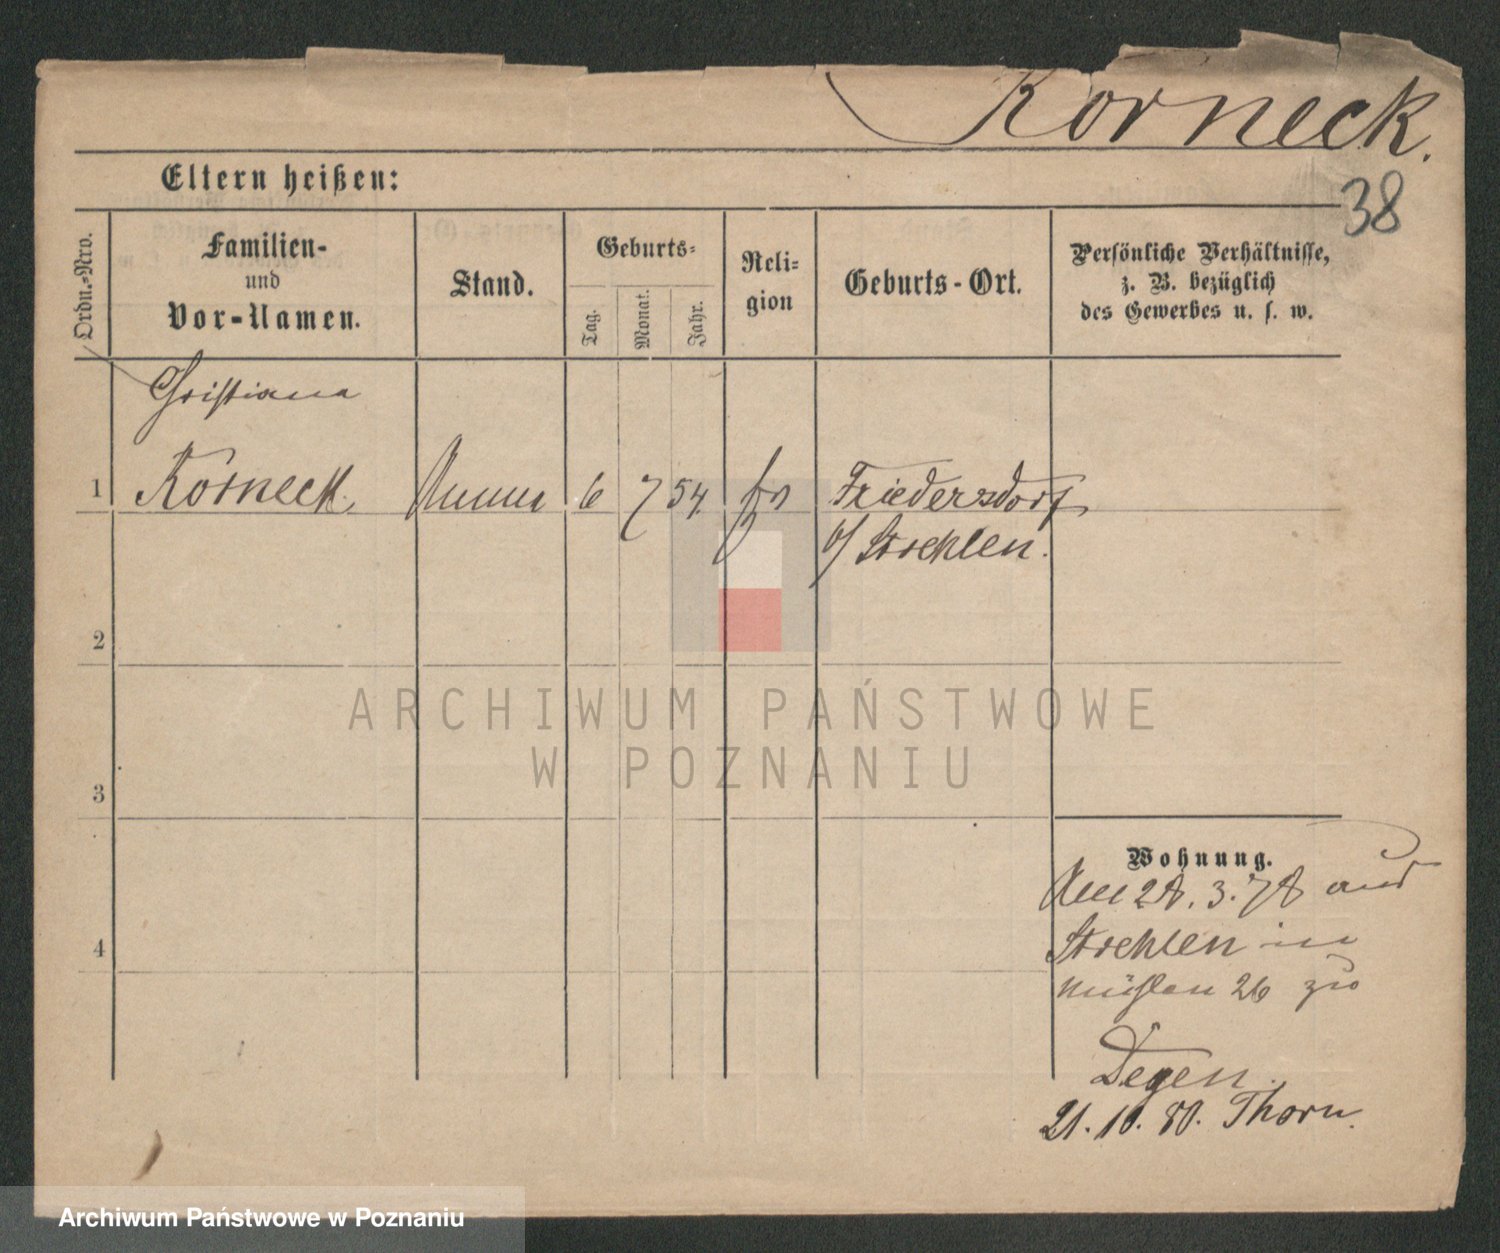 Korneck.
38
Eltern heißen:
Ordn.-Nro.
Familien-
und
Vor-Namen.
Stand.
Geburts-
Tag.
Monat.
Jahr.
Reli-
gion
Geburts-Ort.
Persönliche Verhältnisse,
z. B. bezüglich
des Gewerbes u. s. w.
Christiana
1 Korneck Amme 6 7 54. Friedersdorf
b/ Strehlen.
2
ARCHIWUM PAŃSTWOWE
W POZNANIU
3
Wohnung.
Am 28. 3. 78 aus
Strehlen in
Mühlen 26 zu
Degen.
21.10.80. Thorn.
4
Archiwum Państwowe w Poznaniu